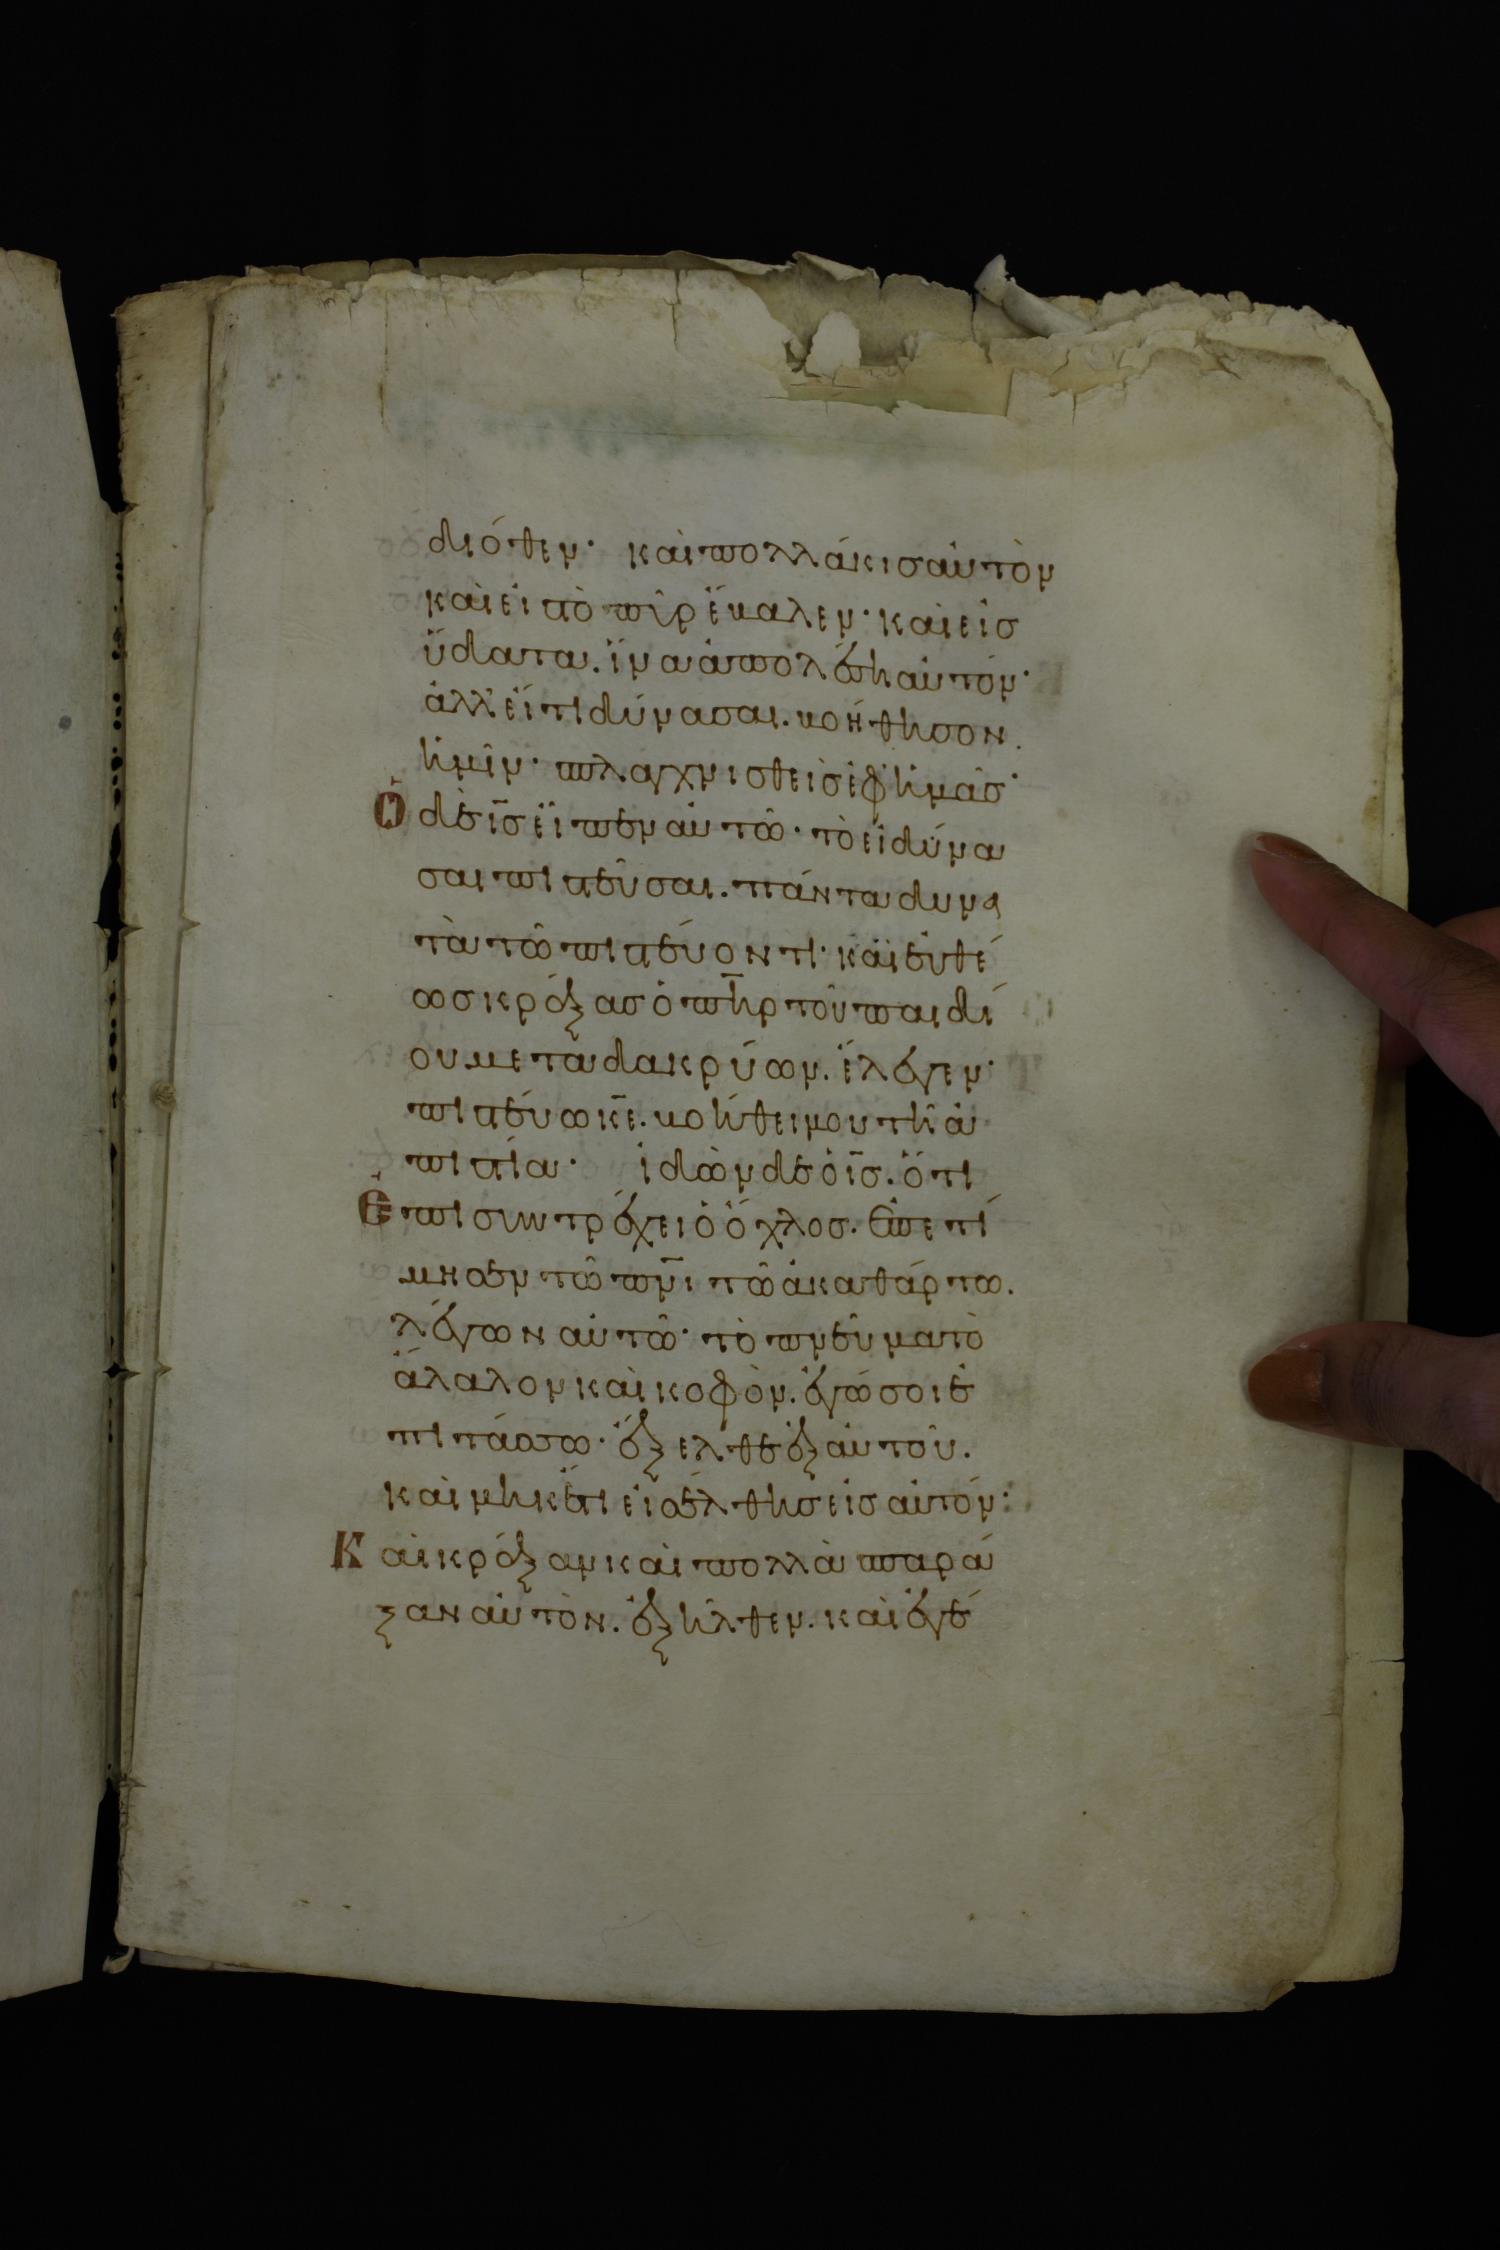 διόθεν· καὶ πολλάκις αὐτὸν
καὶ εἰς τὸ πῦρ ἔβαλεν· καὶ εἰς
ὕδατα. ἵνα ἀπολέσῃ αὐτόν·
ἀλλ' εἴ τι δύνασαι. βοήθησον
ἡμῖν· σπλαγχνισθεὶς ἐφ' ἡμᾶς·
Ὁ δὲ ις̅ εἶπεν αὐτῶ· τὸ εἰ δύνα
σαι πιστεῦσαι. πάντα δυνα
τὰ τῶ πιστεύοντι· καὶ εὐθέ
ως κράξας ὁ πη̅ρ τοῦ παιδί
ου μετὰ δακρύων. ἔλεγεν·
πιστεύω κε̅. βοήθει μου τῆ ἀ
πιστία· ἰδὼν δὲ ὁ ις̅. ὅτι
Ἐπισυντρέχει ὁ ὄχλος. ἐπετί
μησεν τῶ πν̅ι τῶ ἀκαθάρτω.
λέγων αὐτῶ· τὸ πνεῦμα τὸ
ἄλαλον καὶ κοφὸν. ἐγώ σοι ἐ
πιτάσσω· ἔξελθε ἐξ αὐτοῦ.
καὶ μηκέτι εἰσέλθης εἰς αὐτόν·
Καὶ κράξαν καὶ πολλὰ σπαρά
ξαν αὐτὸν. ἐξῆλθεν. καὶ ἐγέ